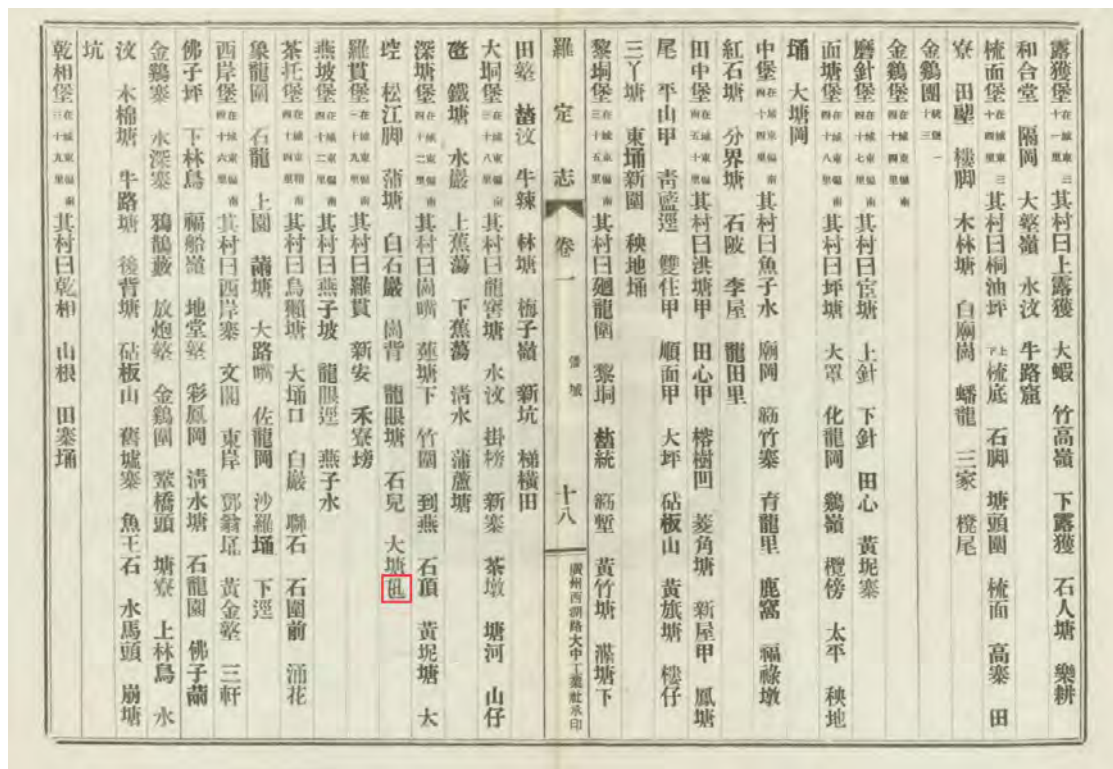 露獲堡在城東三十一里其村曰上露獲 大蝦 竹高嶺 下露獲 石人塘 樂耕
和合堂 隔岡 大嶺 水汶 牛路窟
梳面堡在城東三十四里其村曰桐油坪 上下梳底 石脚 塘頭圍 梳面 高寨 田
寮 田壂 樓脚 木林塘 白廟崗 蟠龍 三家 櫈尾
金鷄團統堡一十三
金鷄堡在城東偏南四十里
磨針堡在城東偏南四十七里其村曰官塘 上針 下針 田心 黃坭寨
面塘堡在城東偏南四十八里其村曰坪塘 大罩 化龍岡 鷄嶺 欖傍 太平 秧地
埇 大塘岡
中堡在城東偏南四十四里其村曰魚子水 廟岡 簕竹寨 育龍里 鹿窩 福祿墩
紅石塘 分界塘 石陂 李屋 龍田里
田中堡在城東偏南五十里其村曰洪塘甲 田心甲 榕樹凹 菱角塘 新屋甲 鳳塘
尾 平山甲 靑藍逕 雙住甲 順面甲 大坪 砧板山 黃旅塘 樓仔
三丫塘 東埇新圍 秧地埇
黎垌堡在城東偏南三十五里其村曰廻龍圍 黎垌 統 簕塹 黃竹塘 塘下
羅定志 卷一 舊城 十八 廣州西湖路大中工業社承印
田 汶 牛辣 林塘 梅子嶺 新坑 梯橫田
大垌堡在城東偏南三十八里其村曰龍窖塘 水汶 掛榜 新寨 茶墩 塘河 山仔
 鐵塘 水巖 上蕉蕩 下蕉蕩 淸水 蒲蘆塘
深塘堡在城東偏南四十二里其村曰崗嘴 蓮塘下 竹圍 到燕 石頂 黃坭塘 大
埪 松江脚 蒲塘 白石巖 崗背 龍眼塘 石兒 大塘
羅貫堡在城東偏南三十九里其村曰羅貫 新安 禾寮塝
燕坡堡在城東偏南四十二里其村曰燕子坡 龍眼逕 燕子水
茶托堡在城東稍南四十四里其村曰烏獺塘 大埇口 白巖 聯石 石圍前 涌花
象龍圍 石龍 上園 塘 大路嘴 佐龍岡 沙羅埇 下逕
西岸堡在城東偏南四十六里其村曰西岸寨 文閣 東岸 鄧翁 黃金 三軒
佛子坪 下林鳥 福船嶺 地堂 彩鳳岡 淸水塘 石龍園 佛子
金鷄寨 水深寨 鴉鵲藪 放炮 金鷄圍 橋頭 塘寮 上林鳥 水
汶 木棉塘 牛路塘 後背塘 砧板山 舊墟寨 魚王石 水馬頭 崩塘
坑
乾相堡在城東偏南三十九里其村曰乾相 山根 田寨埇